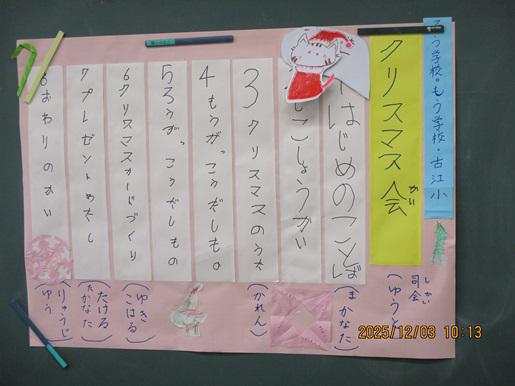 ろう学校・もう学校・古江小
クリスマス会
かい
しかい
司会
(ゆうと)
はじめのことば
(まかなた)
じこしょうかい
3 クリスマスのうた
(かれん)
4 もうがっこうだしもの
5 ろうがっこうだしもの
6 クリスマスカードづくり
(ゆき
こはる)
7 プレゼントわたし
(たける
たかなた)
8 おわりのかい
(りゅうじ
ゆう)
2025/12/03 10:13